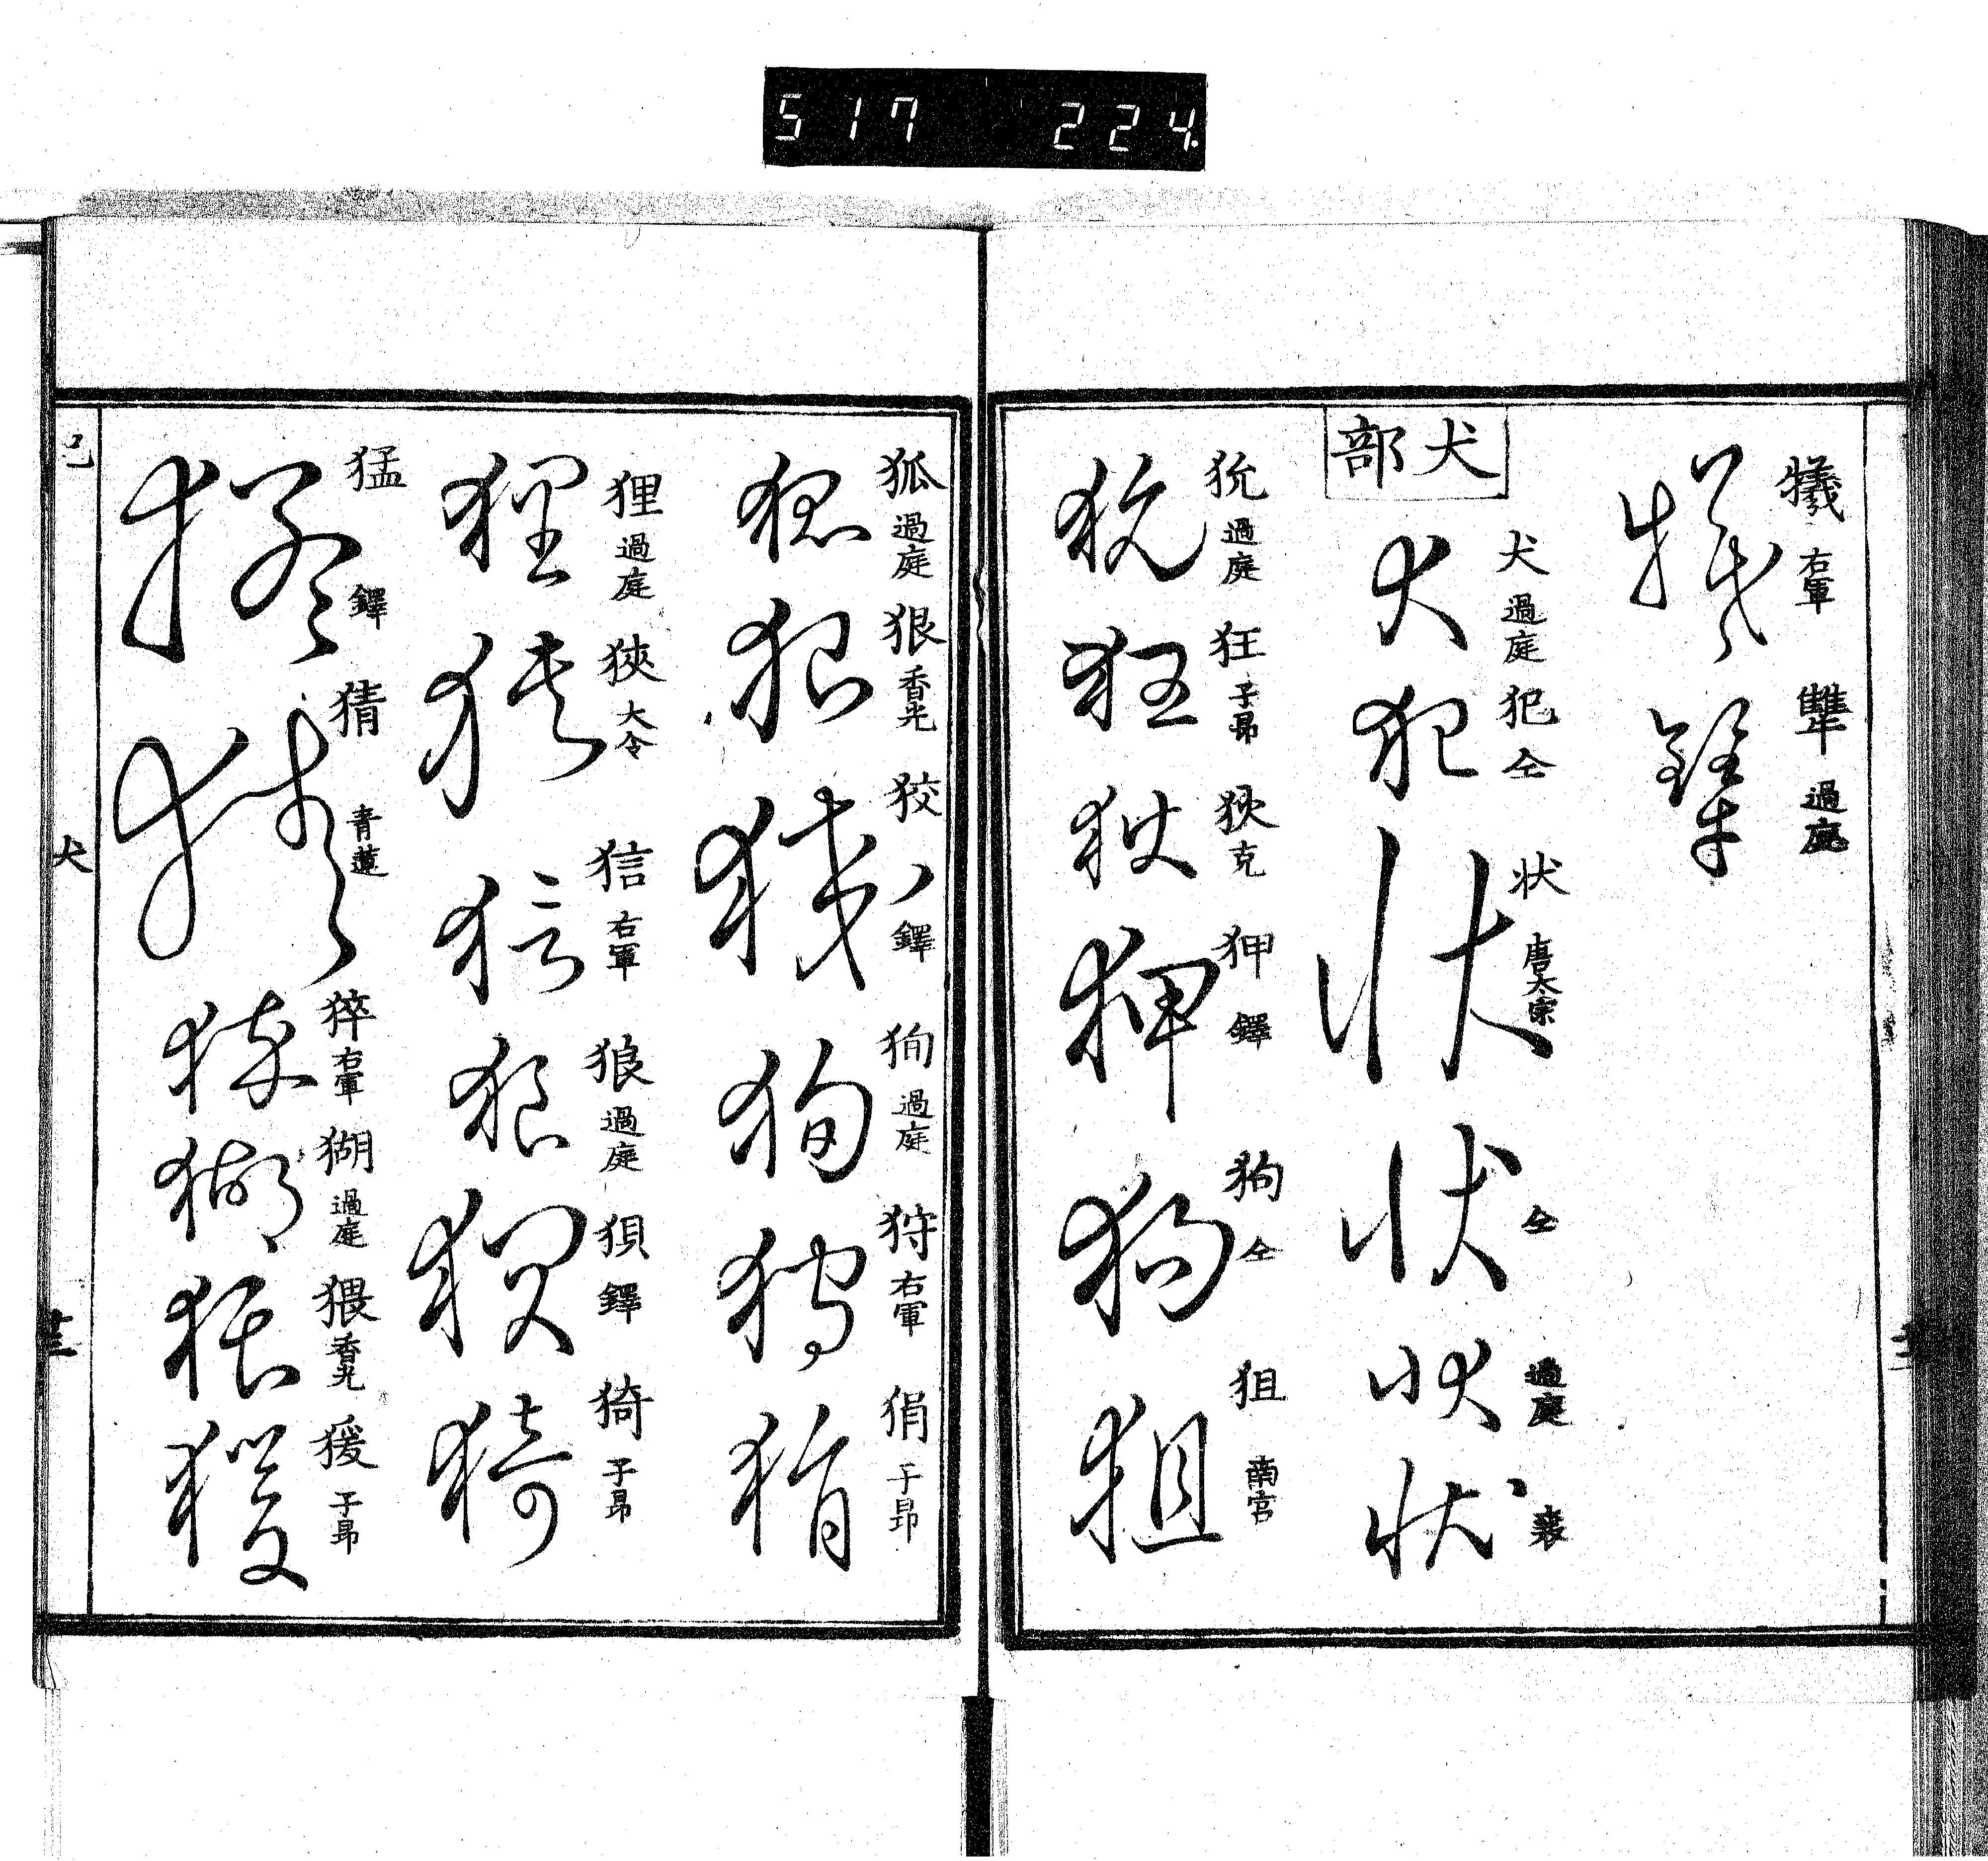 517 224
犧 右軍 犨 過庭
犬部
犬 過庭 犯 仝 状 唐太宗 仝 過庭 裘
狁 過庭 狂 子昂 狄 克 狎 鐸 狗 仝 狙 南宮
狐 過庭 狠 香光 狡 鐸 狥 過庭 狩 右軍 狷 子昂
狸 過庭 狹 大令 狺 右軍 狼 過庭 狽 鐸 猗 子昂
猛 鐸 猜 青蓮 猝 右軍 猢 過庭 猥 香光 猨 子昂
巳 犬